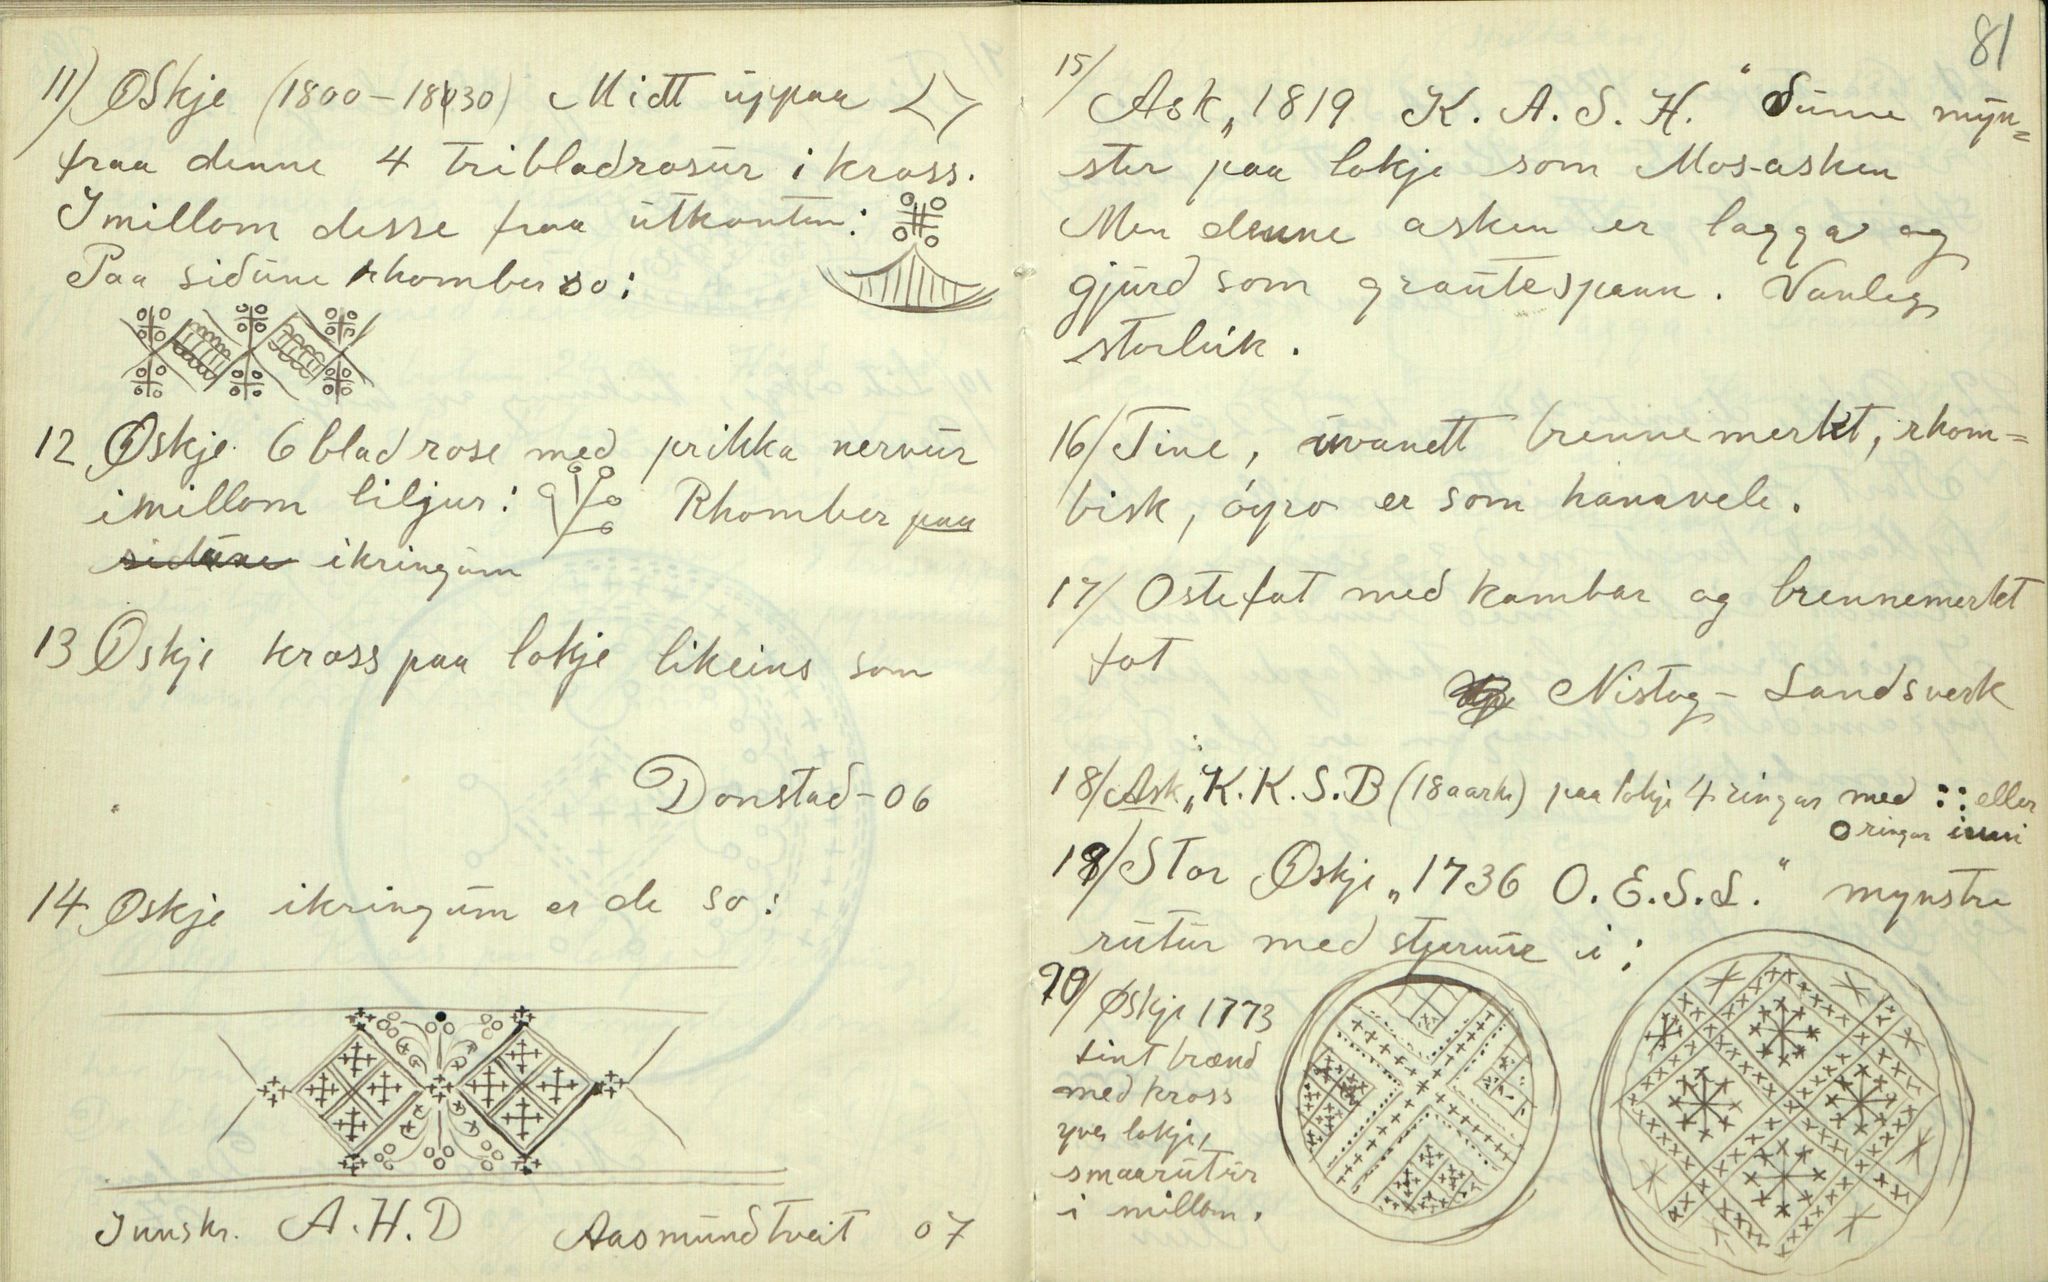 11) Øskje (1800-1830) Midt uppaa
fraa denne 4 tribladrosur i kross.
Imillom desse fraa utkanten:
Paa sidune rhomber so:
12 Øskje. 6 blad rose med prikka nervur
imillom liljur: Rhomber paa
sidune ikringum
13 Øskje kross paa lokje likeins som
Donstad - 06
14 Øskje ikringum er de so:
Innskr. A.H.D Aasmundtveit 07
81
15/ Ask „1819 K. A. S. H." Sume myn=
ster paa lokje som Mos-asken
Men denne asken er lagga og
gjurd som grautespann. Vanleg
storleik.
16/ Tine, uvanett brennemerkt, rhom=
bisk, óyro er som hanavele.
17/ Ostefat med kambar og brennemerkt
fat
Nistog - Landsverk
18/ Ask „K.K.S.B (18aarh) paa lokje 4 ringar med :: eller
o ringar inni
19/ Stor Øskje „1736 O.E.S.L." mynstre
rutur med stjernure i:
20/ Øskje 1773
Fint brænd
med kross
yver lokje,
smaarutur
i millom.